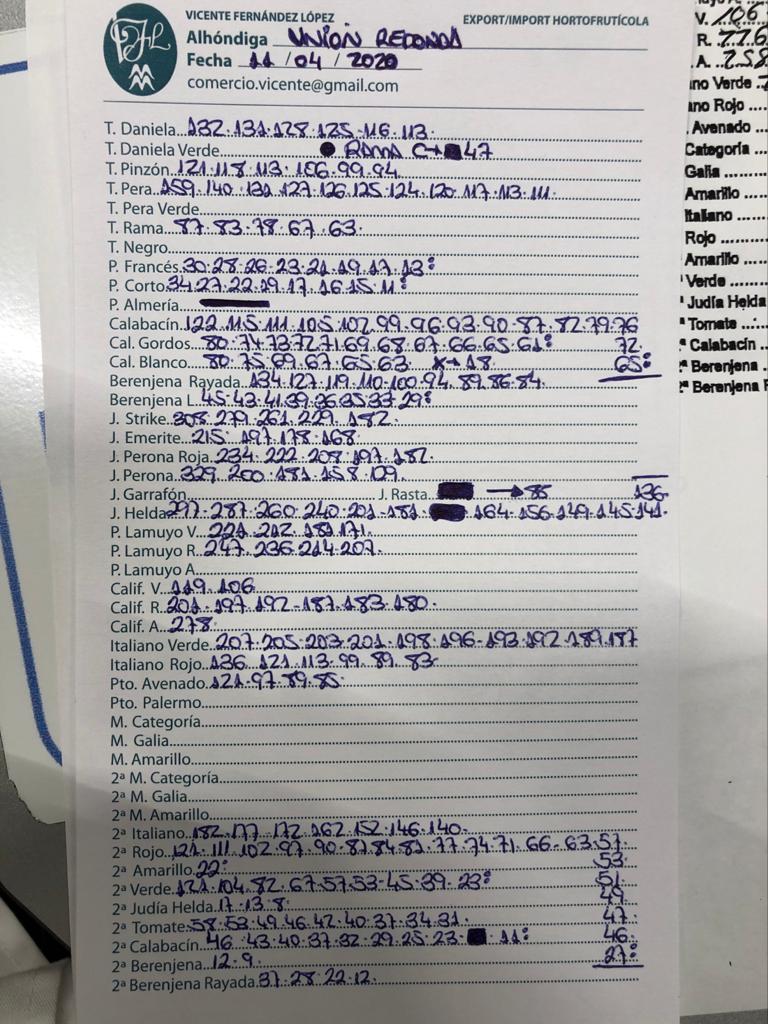 VICENTE FERNÁNDEZ LÓPEZ EXPORT/IMPORT HORTOFRUTÍCOLA
Alhóndiga UNION REDONDA
Fecha 11 / 04 / 2020
comercio.vicente@gmail.com
T. Daniela 132.131.128.125.116.113.
T. Daniela Verde RAMA C→47
T. Pinzón 121.118.113.106.99.94
T. Pera 159.140.131.127.126.125.124.120.117.113.111.
T. Pera Verde
T. Rama 87.83.78.67.63.
T. Negro
P. Francés 30.28.26.23.21.19.17.13:
P. Corto 34.27.22.19.17.16.15.11:
P. Almería
Calabacín 122.115.111.105.102.99.96.93.90.87.82.79.76
Cal. Gordos 80.74.73.72.71.69.68.67.66.65.61: 72.
Cal. Blanco 80.75.69.67.65.63 x→18. 65:
Berenjena Rayada 134.127.119.110.100.94.89.86.84.
Berenjena L. 45.43.41.39.36.35.33.29:
J. Strike 308.279.261.229.182.
J. Emerite 215.197.178.168.
J. Perona Roja 234.222.208.197.182.
J. Perona 329.200.181.158.109.
J. Garrafón J. Rasta →85 136.
J. Helda 297.287.260.240.201.181. 164.156.149.145.141.
P. Lamuyo V. 221.212.181.171.
P. Lamuyo R. 247.236.214.207.
P. Lamuyo A.
Calif. V. 119.106.
Calif. R. 201.197.192.187.183.180.
Calif. A. 278.
Italiano Verde 207.205.203.201.198.196.193.192.189.187
Italiano Rojo 136.121.113.99.89.83.
Pto. Avenado 121.97.89.85.
Pto. Palermo
M. Categoría
M. Galia
M. Amarillo
2ª M. Categoría
2ª M. Galia
2ª M. Amarillo
2ª Italiano 182.177.172.162.152.146.140.
2ª Rojo 121.111.102.97.90.87.84.81.77.74.71.66.63.57.
2ª Amarillo 22: 53.
2ª Verde 121.104.82.67.57.53.45.39.23: 51.
2ª Judía Helda 17.13.8. 49.
2ª Tomate 58.53.49.46.42.40.37.34.31. 47.
2ª Calabacín 46.43.40.37.32.29.25.23. 11: 46.
2ª Berenjena 12.9. 27:
2ª Berenjena Rayada 37.28.22.12.
V. 106
R. 226
A. 258
no Verde
no Rojo
Avenado
Categoría
Galia
Amarillo
Italiano
Rojo
Amarillo
Verde
Judía Helda
Tomate
ª Calabacín
ª Berenjena
ª Berenjena R